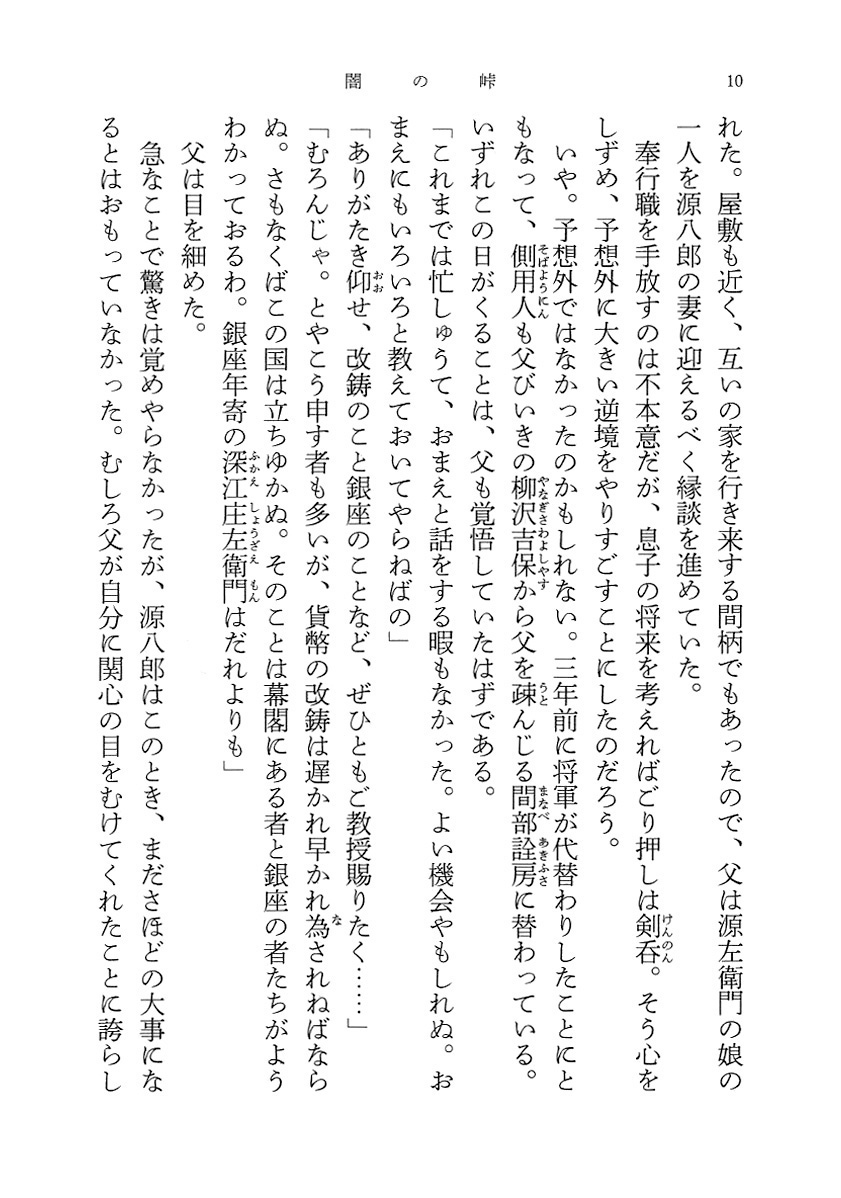 10
闇の峠
れた。屋敷も近く、互いの家を行き来する間柄でもあったので、父は源左衛門の娘の
一人を源八郎の妻に迎えるべく縁談を進めていた。
　奉行職を手放すのは不本意だが、息子の将来を考えればごり押しは剣呑。そう心を
しずめ、予想外に大きい逆境をやりすごすことにしたのだろう。
　いや。予想外ではなかったのかもしれない。三年前に将軍が代替わりしたことにと
もなって、側用人も父びいきの柳沢吉保から父を疎んじる間部詮房に替わっている。
いずれこの日がくることは、父も覚悟していたはずである。
「これまでは忙しゅうて、おまえと話をする暇もなかった。よい機会やもしれぬ。お
まえにもいろいろと教えておいてやらねばの」
「ありがたき仰せ、改鋳のこと銀座のことなど、ぜひともご教授賜りたく……」
「むろんじゃ。とやこう申す者も多いが、貨幣の改鋳は遅かれ早かれ為されねばなら
ぬ。さもなくばこの国は立ちゆかぬ。そのことは幕閣にある者と銀座の者たちがよう
わかっておるわ。銀座年寄の深江庄左衛門はだれよりも」
　父は目を細めた。
　急なことで驚きは覚めやらなかったが、源八郎はこのとき、まださほどの大事にな
るとはおもっていなかった。むしろ父が自分に関心の目をむけてくれたことに誇らし